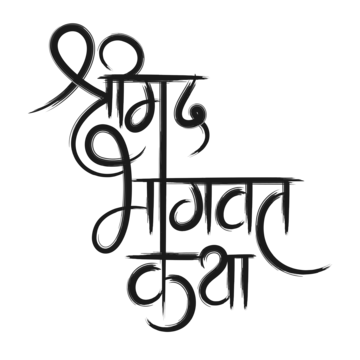 श्रीमद्
भागवत
कथा